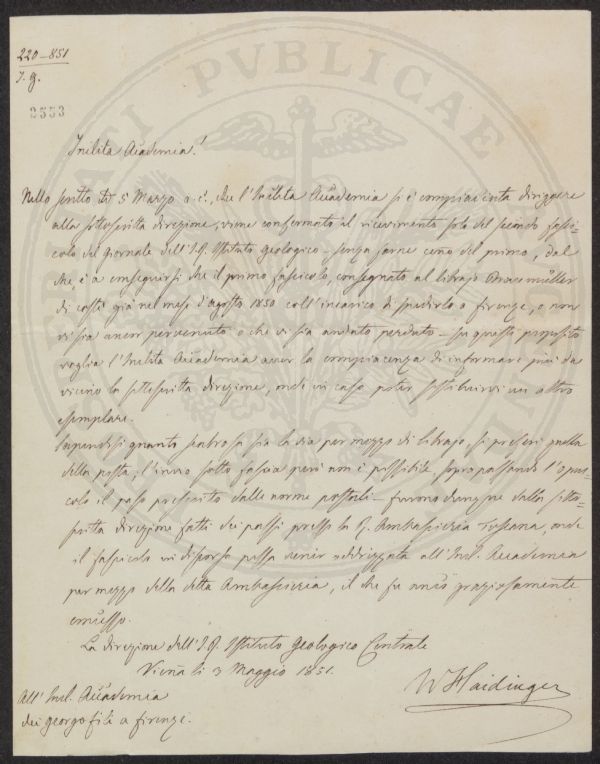 220-851
I. G.
2553
Inclita Accademia!
Nello scritto di 5 Marzo a. c., che l'Inclita Accademia si è compiaciuta dirigere
alla sottoscritta direzione, viene confermato il ricevimento solo del secondo fasci-
colo del giornale dell'I. R. Istituto Geologico – senza farne ceno del primo, dal
che è a conseguirsi che il primo fascicolo, consegnato al librajo Braumüller
di costì già nel mese d'agosto 1850 coll'incarico di spedirlo a Firenze, o non
vi sia ancor pervenuto o che vi sia andato perduto – su questo proposito
voglia l'Inclita Accademia aver la compiacenza di informare più da
vicino la sottoscritta direzione, onde in caso poter sostituirvi un altro
esemplare.
Sapendosi quanto scabrosa sia la via per mezzo di librajo, si preferì quella
della posta; l'invio sotto fascia però non è possibile, sorpassando l'opus-
colo il peso prescritto dalle norme postali – furono dunque dalla sotto-
scritta direzione fatti dei passi presso la R. Ambascieria Toscana, onde
il fascicolo in discorso possa venir addirizzato all'Incl. Accademia
per mezzo della detta Ambascieria, il che fu anco graziosamente
concesso.
La direzione dell'I. R. Istituto Geologico Centrale
Vienna li 3 Maggio 1851.
W Haidinger
All' Incl. Accademia
dei georgofili a Firenze.